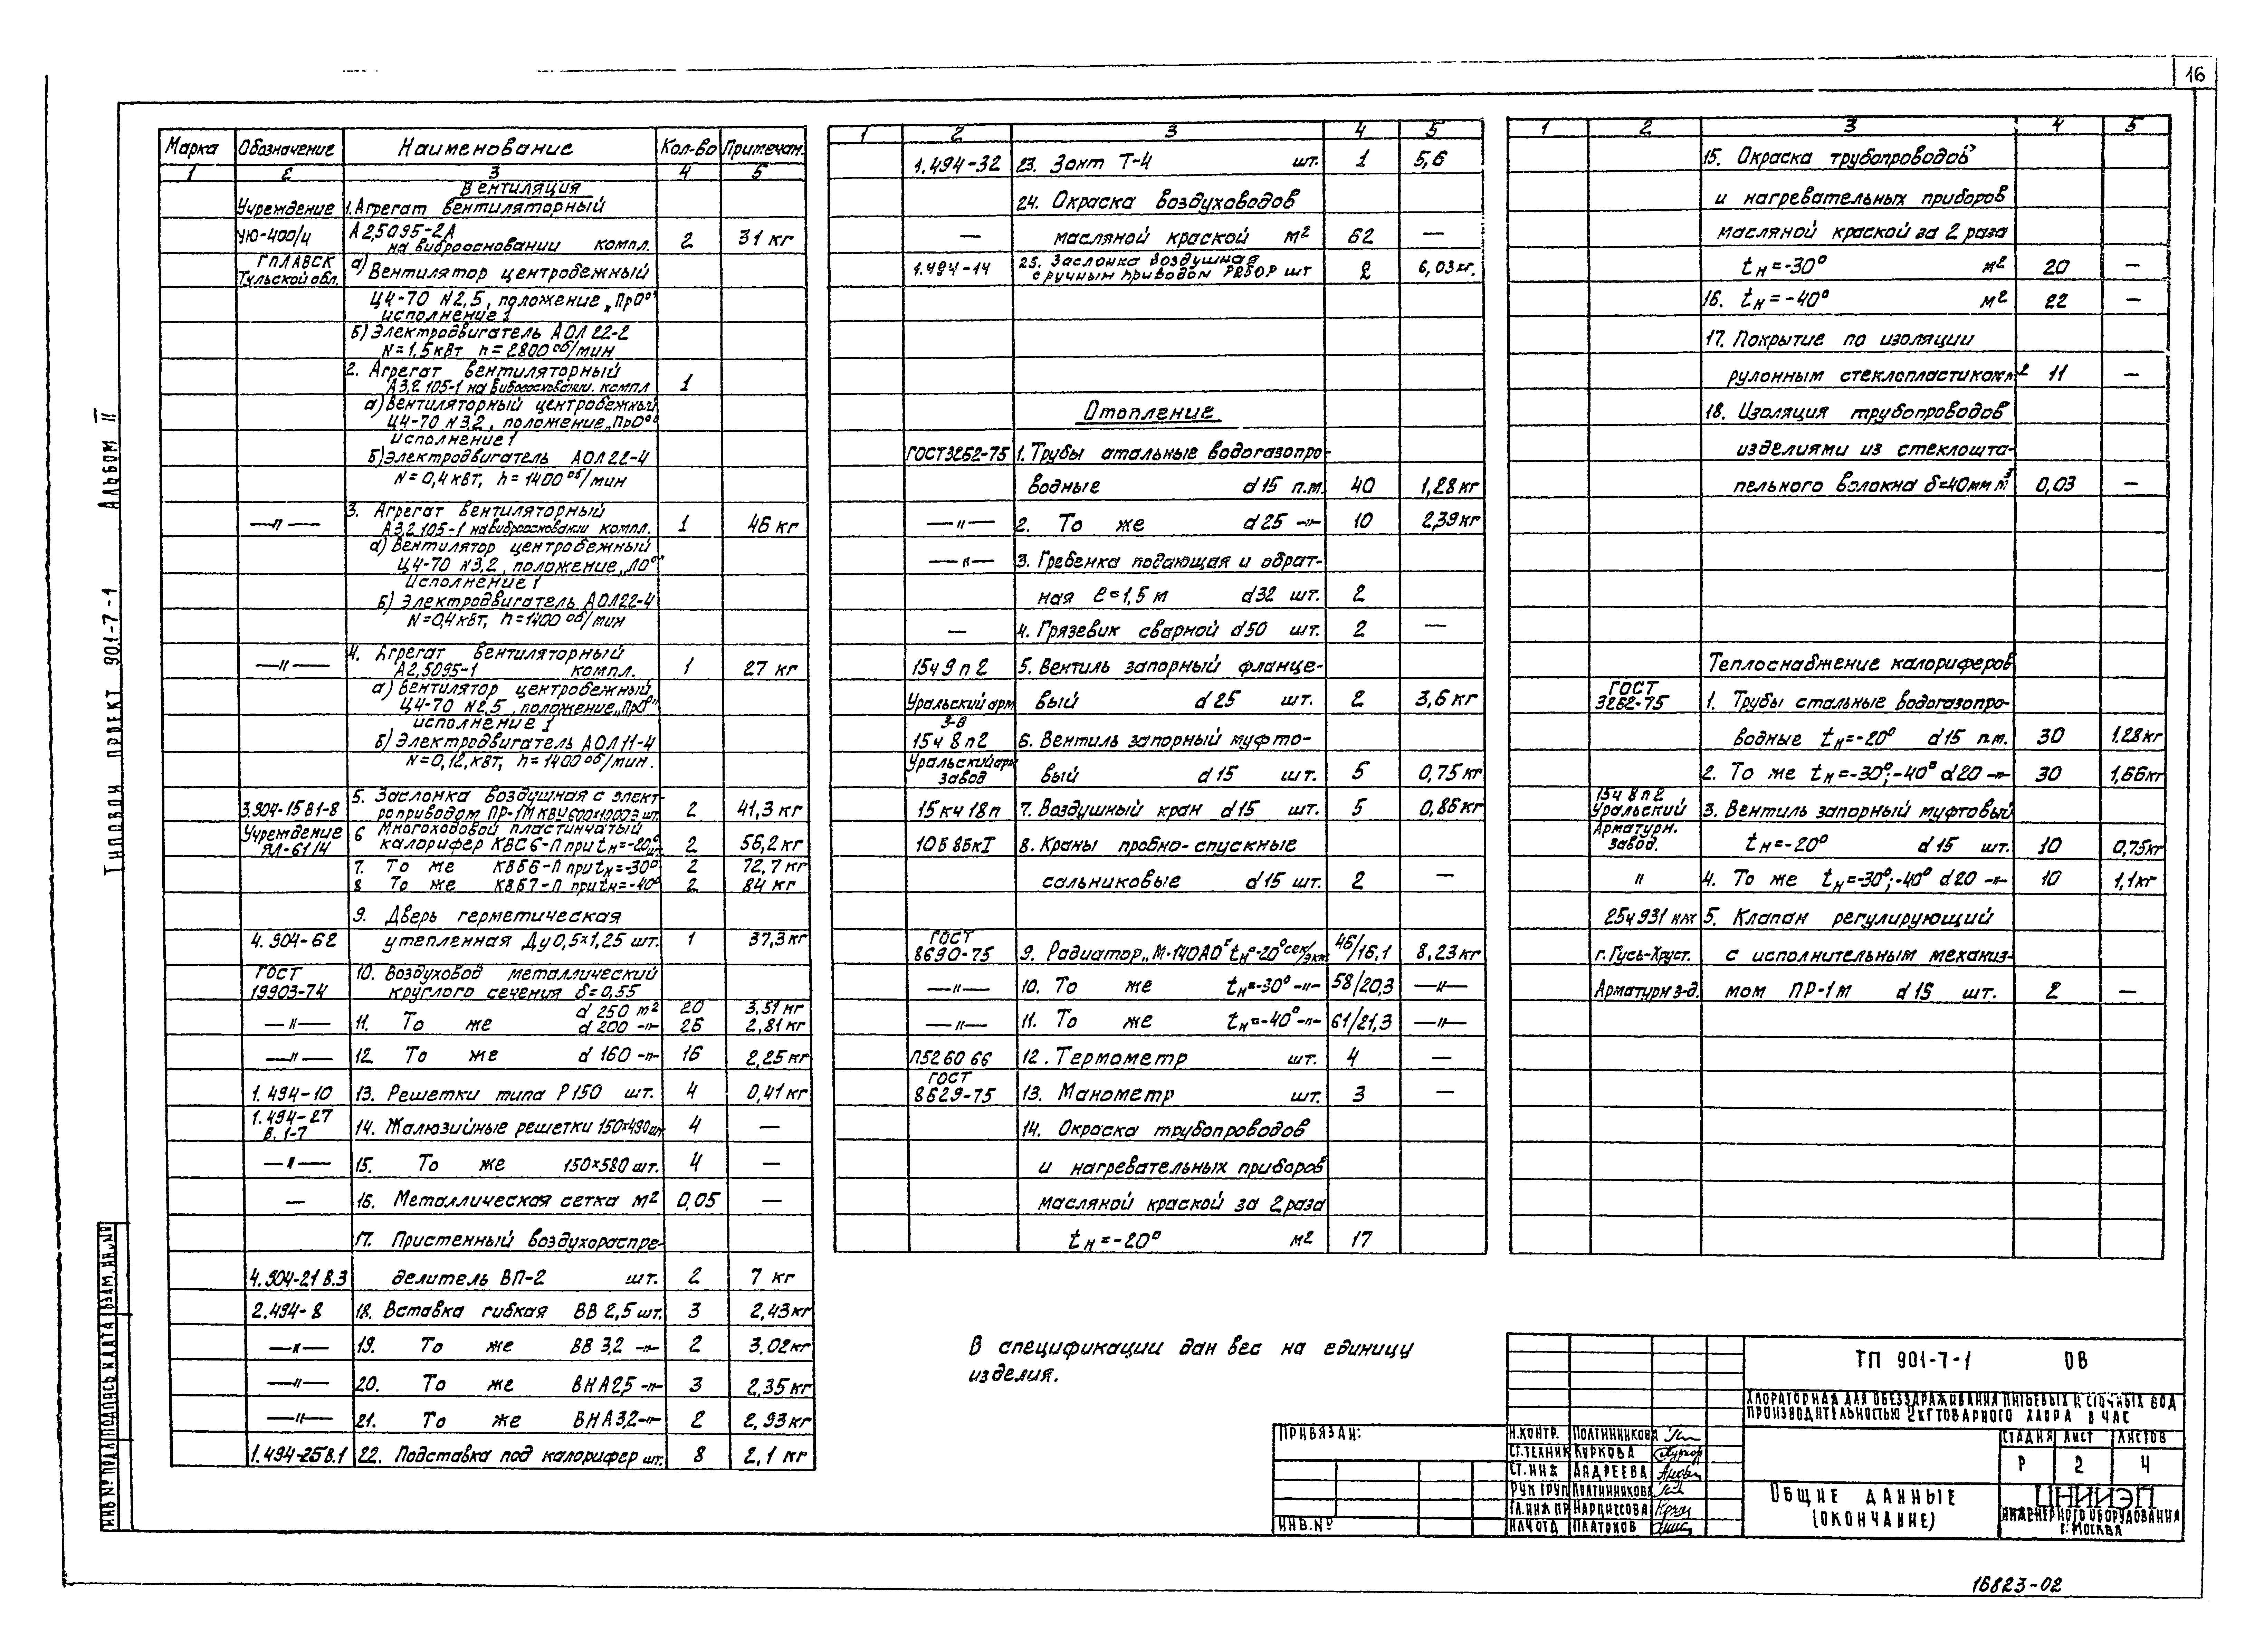 16
Альбом II
Типовой проект 901-7-1
Марка Обозначение Наименование Кол-во Примечан.
1 2 3 4 5
Вентиляция
Учреждение 1. Агрегат вентиляторный
УЮ-400/4 А2,5095-2А
на виброосновании компл. 2 31 кг
ГПЛАВСК
Тульской обл. а) Вентилятор центробежный
Ц4-70 №2,5, положение „Пр0°"
исполнение 1
б) Электродвигатель АОЛ 22-2
N=1,5 кВт n=2800 об/мин
2. Агрегат вентиляторный
А3,2 105-1 на виброосновании. компл 1
а) Вентиляторный центробежный
Ц4-70 №3,2, положение „Пр0°"
исполнение 1
б) Электродвигатель АОЛ 22-4
N=0,4 кВт, n=1400 об/мин
3. Агрегат вентиляторный
—„— А3,2 105-1 на виброосновании компл. 1 46 кг
а) Вентилятор центробежный
Ц4-70 №3,2, положение „Л0°"
исполнение 1
б) Электродвигатель АОЛ22-4
N=0,4 кВт, n=1400 об/мин
4. Агрегат вентиляторный
—„— А2,5095-1 компл. 1 27 кг
а) Вентилятор центробежный
Ц4-70 №2,5, положение
исполнение 1
б) Электродвигатель АОЛ 11-4
N=0,12, кВт, n=1400 об/мин.
5. Заслонка воздушная с элект-
3.904-15 В1-8 роприводом ПР-1М КВУ 600х1000Э шт. 2 41,3 кг
Учреждение 6 Многоходовой пластинчатый
ЯЛ-61/4 калорифер КВС6-П при tн=-20° шт. 2 56,2 кг
7. То же КВБ6-П при tн=-30° 2 72,7 кг
8 То же КВБ7-П при tн=-40° 2 84 кг
9. Дверь герметическая
4.904-62 утепленная Ду 0,5×1,25 шт. 1 37,3 кг
ГОСТ 10. Воздуховод металлический
19903-74 круглого сечения δ=0,55
d 250 м² 20 3,51 кг
—„— 11. То же d 200 —„— 26 2,81 кг
—„— 12. То же d 160 —„— 16 2,25 кг
1.494-10 13. Решетки типа Р150 шт. 4 0,41 кг
1.494-27
В. 1-7 14. Жалюзийные решетки 150×490 шт. 4 —
—„— 15. То же 150×580 шт. 4 —
— 16. Металлическая сетка м² 0,05 —
17. Пристенный воздухораспре-
4.904-21 В.3 делитель ВП-2 шт. 2 7 кг
2.494-8 18. Вставка гибкая ВВ 2,5 шт. 3 2,43 кг
—„— 19. То же ВВ 3,2 —„— 2 3.02 кг
—„— 20. То же ВНА2,5 —„— 3 2,35 кг
—„— 21. То же ВНА3,2 —„— 2 2,93 кг
1.494-25 В.1 22. Подставка под калорифер шт. 8 2,1 кг
1 2 3 4 5
1.494-32 23. Зонт Т-4 шт. 1 5,6
24. Окраска воздуховодов
— масляной краской м² 62 —
25. Заслонка воздушная
1.494-14 с ручным приводом шт 2 6,03 кг.
Отопление
ГОСТ3262-75 1. Трубы стальные водогазопро-
водные d15 п.м. 40 1,28 кг
—„— 2. То же d 25 —„— 10 2,39 кг
—„— 3. Гребенка подающая и обрат-
ная ℓ=1,5 м d32 шт. 2
— 4. Грязевик сварной d50 шт. 2 —
15ч 9 п 2 5. Вентиль запорный фланце-
Уральский арм. вый d 25 шт. 2 3,6 кг
з-в
15ч 8 п2 6. Вентиль запорный муфто-
Уральский арм.
завод вый d 15 шт. 5 0,75 кг
15 кч 18 п 7. Воздушный кран d 15 шт. 5 0,86 кг
10Б 8бкI 8. Краны пробно-спускные
сальниковые d 15 шт. 2 —
ГОСТ
8690-75 9. Радиатор „М-140АО" tн=-20° сек/экм 46/16,1 8,23 кг
—„— 10. То же tн=-30° —„— 58/20,3 —„—
—„— 11. То же tн=-40° —„— 61/21,3 —„—
П5 2 60 66 12. Термометр шт. 4 —
ГОСТ
8629-75 13. Манометр шт. 3 —
14. Окраска трубопроводов
и нагревательных приборов
масляной краской за 2 раза
tн=-20° м² 17
1 2 3 4 5
15. Окраска трубопроводов
и нагревательных приборов
масляной краской за 2 раза
tн=-30° м² 20 —
16. tн=-40° м² 22 —
17. Покрытие по изоляции
рулонным стеклопластиком м² 11 —
18. Изоляция трубопроводов
изделиями из стеклошта-
пельного волокна δ=40мм м³ 0,03 —
Теплоснабжение калориферов
ГОСТ
3262-75 1. Трубы стальные водогазопро-
водные tн=-20° d15 п.м. 30 1.28 кг
2. То же tн=-30°;-40° d20 —„— 30 1,66 кг
15ч 8 п2
Уральский 3. Вентиль запорный муфтовый
Арматурн.
завод. tн=-20° d 15 шт. 10 0,75 кг
„ 4. То же tн=-30°;-40° d20 —„— 10 1,1 кг
25ч 931 нж 5. Клапан регулирующий
г. Гусь-Хруст. с исполнительным механиз-
Арматурн з-д. мом ПР-1М d 15 шт. 2 —
В спецификации дан вес на единицу
изделия.
ТП 901-7-1 ОВ
Хлораторная для обеззараживания питьевых и сточных вод
производительностью 2 кг товарного хлора в час
Привязан:
Инв.№
Н.контр. Полтинникова
Ст.техник Куркова
Ст.инж Андреева
Рук груп Полтинникова
Гл.инж пр Нарциссова
Нач отд Платонов
Стадия Лист Листов
Р 2 4
Общие данные
(окончание)
ЦНИИЭП
инженерного оборудования
г. Москва
Инв № подл Подпись и дата Взам. ин.№
16823-02